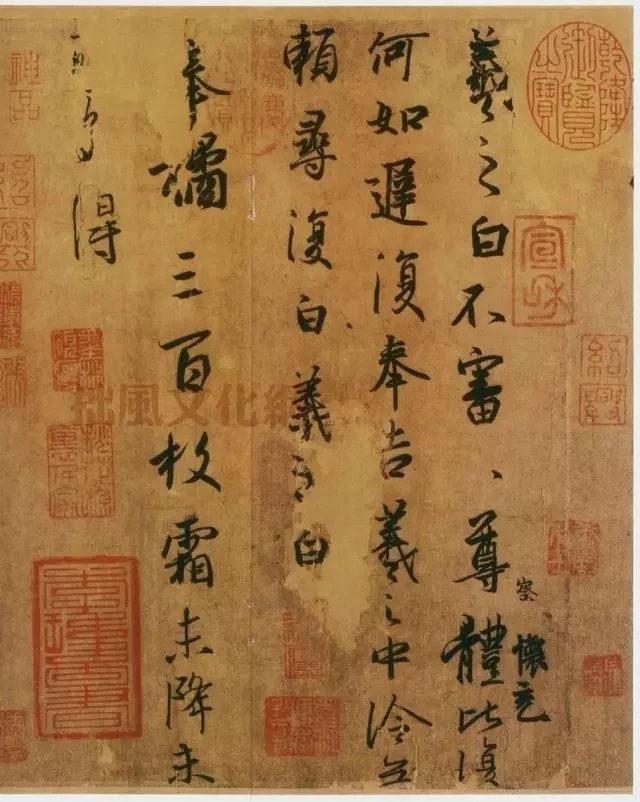 羲之白不審、尊體比復
察
懷充
何如遲復奉告羲之中冷無
賴尋復白羲之白
奉橘三百枚霜未降未
可多得
乾隆御覽之寶
宣和
紹興
神品
拙風文化